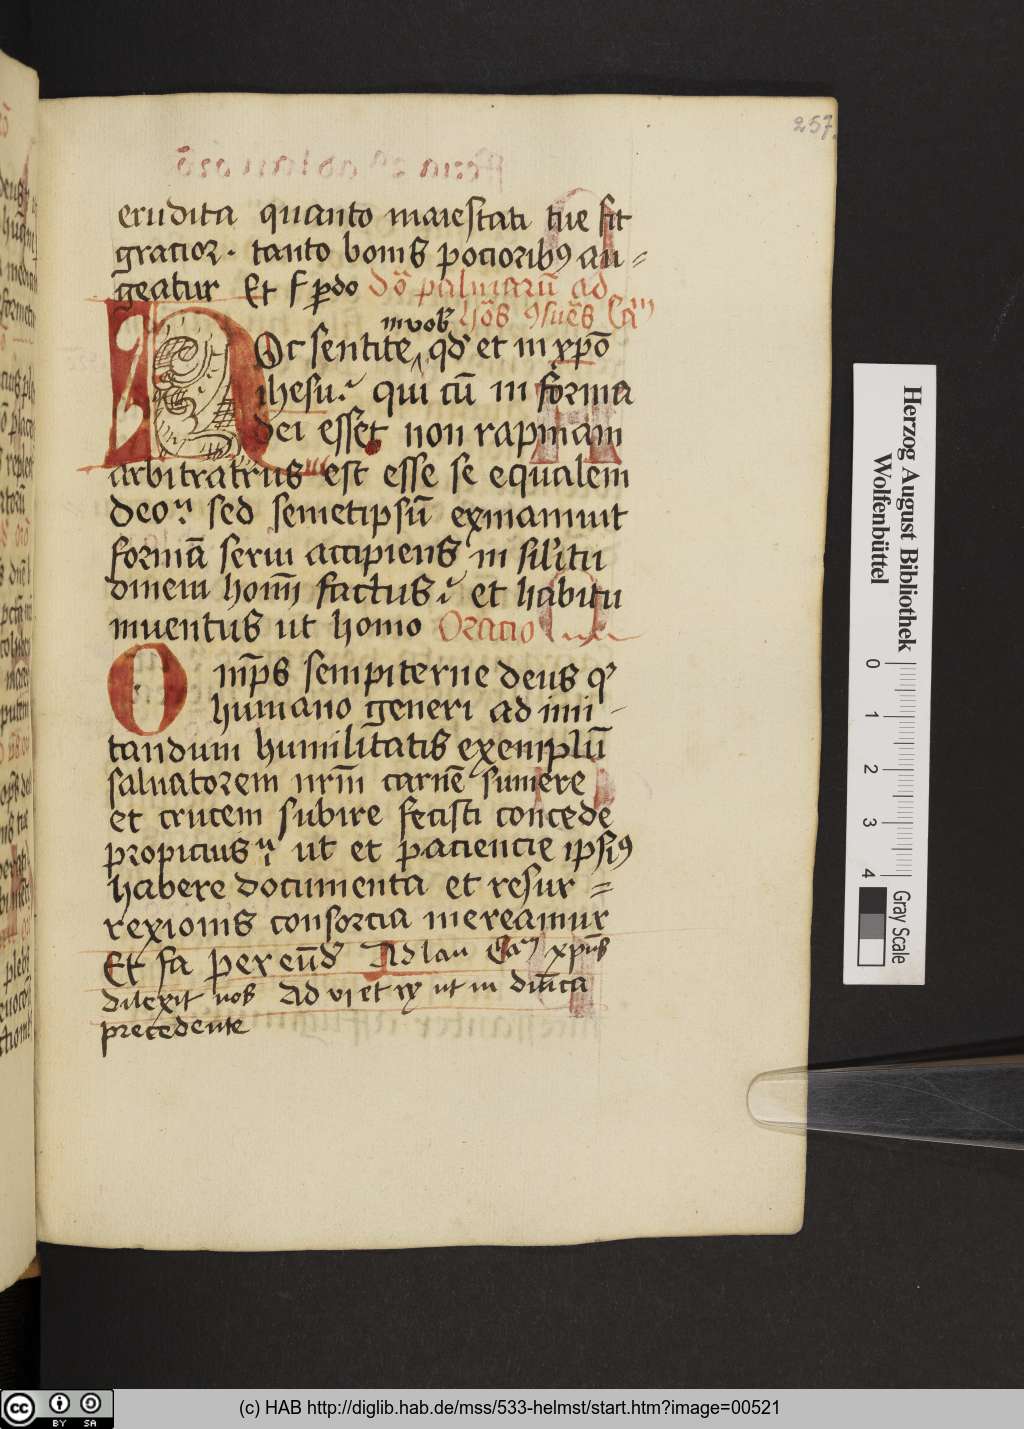 257.
erudita quanto maiestati tue sit
gracior. tanto bonis pocioribꝰ au=
geatur Et f ꝑdo dō palmarū ad
hos ꝯsues Ca
in vob
Hoc sentite qd et in xpō
ihesu. qui cū in forma
dei esset non rapinam
arbitratus est esse se equalem
deo. sed semetipsū exinaniuit
formā serui accipiens in silitu
dinem homī factus. et habitu
inuentus ut homo Oratio
Omps sempiterne deus q
humano generi ad imi
tandum humilitatis exemplū
saluatorem nrm carnē sumere
et crucem subire fecisti concede
propicius ut et paciencie ipsiꝰ
habere documenta et resur =
rexionis consorcia mereamur
Et fa per eūd Ad lau Ca xpus
dilexit nos Ad vi et ix ut in dnica
precedente
Herzog August Bibliothek
Wolfenbüttel
0
1
2
3
4
Gray Scale
cc BY SA
(c) HAB http://diglib.hab.de/mss/533-helmst/start.htm?image=00521